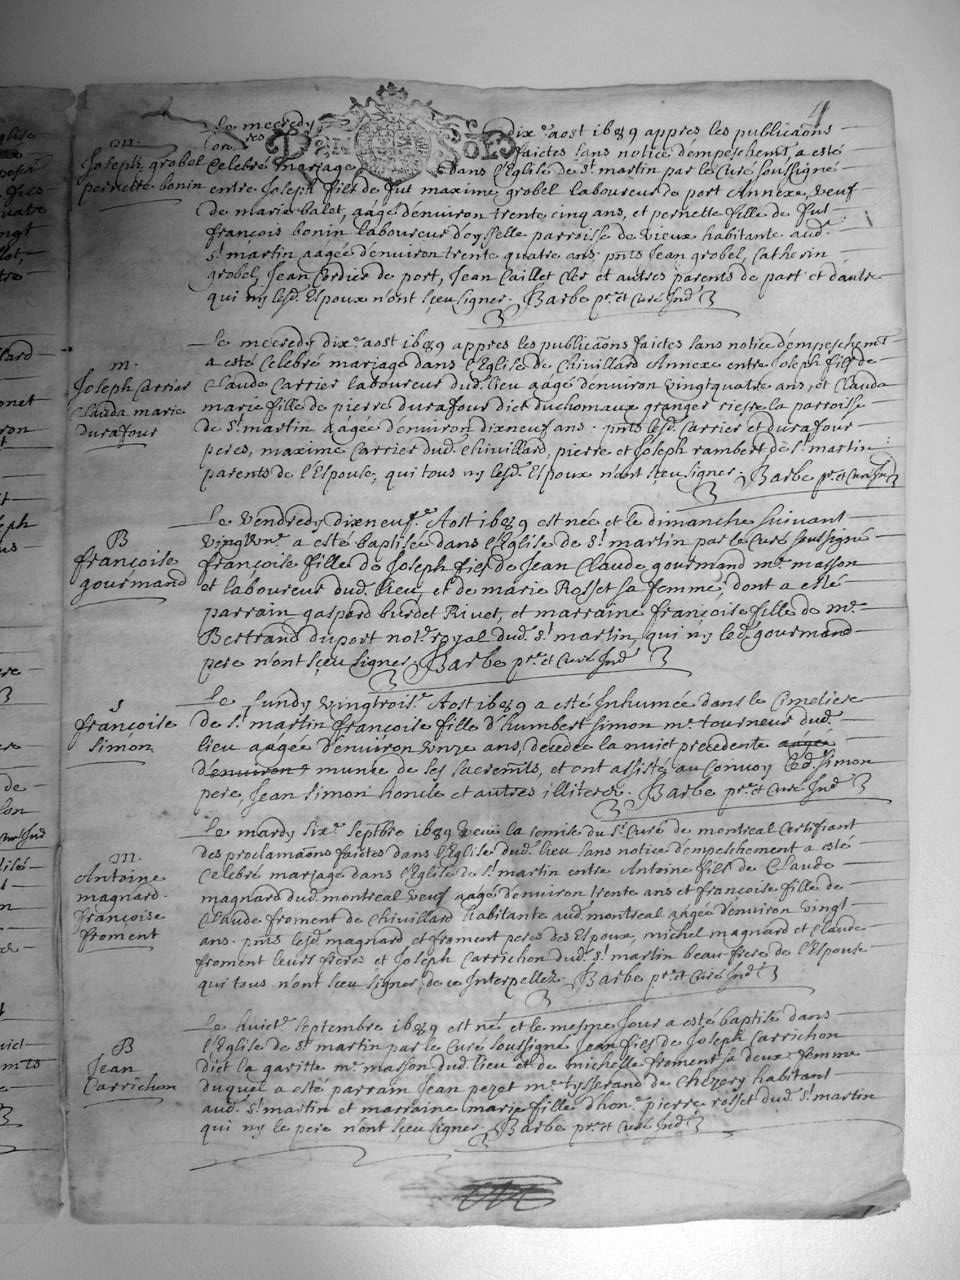 4
Le mecredy dix.e aost 1689 appres les publicaons
ores faictes sans notice d'empeschem.t a esté
m.
Joseph grobel
pernette bonin
Celebré mariage dans l'Eglise de s.t martin par le Curé soussigné
entre Joseph fils de fut maxime grobel laboureur de port Annexe, veuf
de marie balet, aâgé d'environ trente cinq ans, et pernette fille de fut
françois bonin laboureur d'oysselle parroisse de vieux habitante aud.
s.t martin aâgée d'environ trente quatre ans. pnts Jean grobel, Catherin
grobel, Jean Cordier de port, Jean Caillet Cler et autres parents de part et d'autre
qui ny lesd. Espoux n'ont sçeu signer. Barbe p.re et Curé Ind.
Le mecredy dix.e aost 1689 appres les publicaons faictes sans notice d'empeschem.t
m.
Joseph Carrier
Clauda marie
durafour
a esté Celebré mariage dans l'Eglise de Chivillard Annexe entre Joseph fils de
Claude Carrier laboureur dud. lieu aagé d'environ vingtquatre ans, et Clauda
marie fille de pierre durafour dict duchomaux granger riesre la parroisse
de S.t martin aâgée d'environ dixneuf ans. pnts lesd. Carrier et durafour
peres, maxime Carrier dud. Chivillard, pierre et Joseph rambert de s.t martin
parents de l'Espouse, qui tous ny lesd. Espoux n'ont sçeu signer. Barbe p.r et Curé Ind.
B
françoise
gourmand
Le Vendredy dixneuf.e Aost 1689 est née et le dimanche suivant
vingtun.e a esté baptisée dans l'Eglise de S.t martin par le Curé soussigné
françoise fille de Joseph fils de Jean Claude gourmand m.e masson
et laboureur dud. lieu, et de marie Rosset sa femme, dont a esté
parrain gaspard burdet Rivet, et marraine françoise fille de m.e
Bertrand duport not.e royal dud. s.t martin qui ny led. gourmand
pere n'ont sçeu signer. Barbe p.re et Curé Ind.
S
françoise
simon
Le Lundy vingtrois.e Aost 1689 a esté Inhumée dans le Cimetiere
de s.t martin françoise fille d'humbert simon m.e tourneur dud.
lieu aagée d'environ unze ans, decedée la nuict precedente aagée
d'environ, munie de ses sacrem.ts, et ont assisté au Convoy led. simon
pere, Jean simon et autres illiterez. Barbe p.re et Curé Ind.
m.
Antoine
magnard.
françoise
froment
Le mardy six.e septbre 1689 veuë la remise du s.r Curé de montreal Certifiant
des proclamaons faictes dans l'Eglise dud. lieu sans notice d'empeschement a esté
Celebré mariage dans l'Eglise de s.t martin entre Antoine fils de Claude
magnard dud. montreal veuf aâgé d'environ trente ans et françoise fille de
Claude froment de Chivillard habitante aud. montreal aâgée d'environ vingt
ans. pnts lesd. magnard et froment peres des Espoux, michel magnard et Claude
froment leurs freres et Joseph Carrichon dud. s.t martin beau frere de l'Espouse
qui tous n'ont sçeu signer, de ce Interpellez. Barbe p.re et Curé Ind.
B
Jean
Carrichon
Le huict.e septembre 1689 est né et le mesme Jour a esté baptisé dans
l'Eglise de s.t martin par le Curé soussigné Jean fils de Joseph Carrichon
dict la garitte m.e masson dud. lieu et de michelle froment sa deux. femme
duquel a esté parrain Jean pezet m.e tysserand de Chezery habitant
aud. s.t martin et marraine marie fille d'hon. pierre rosset dud. s.t martin
qui ny le pere n'ont sçeu signer. Barbe p.re et Curé Ind.